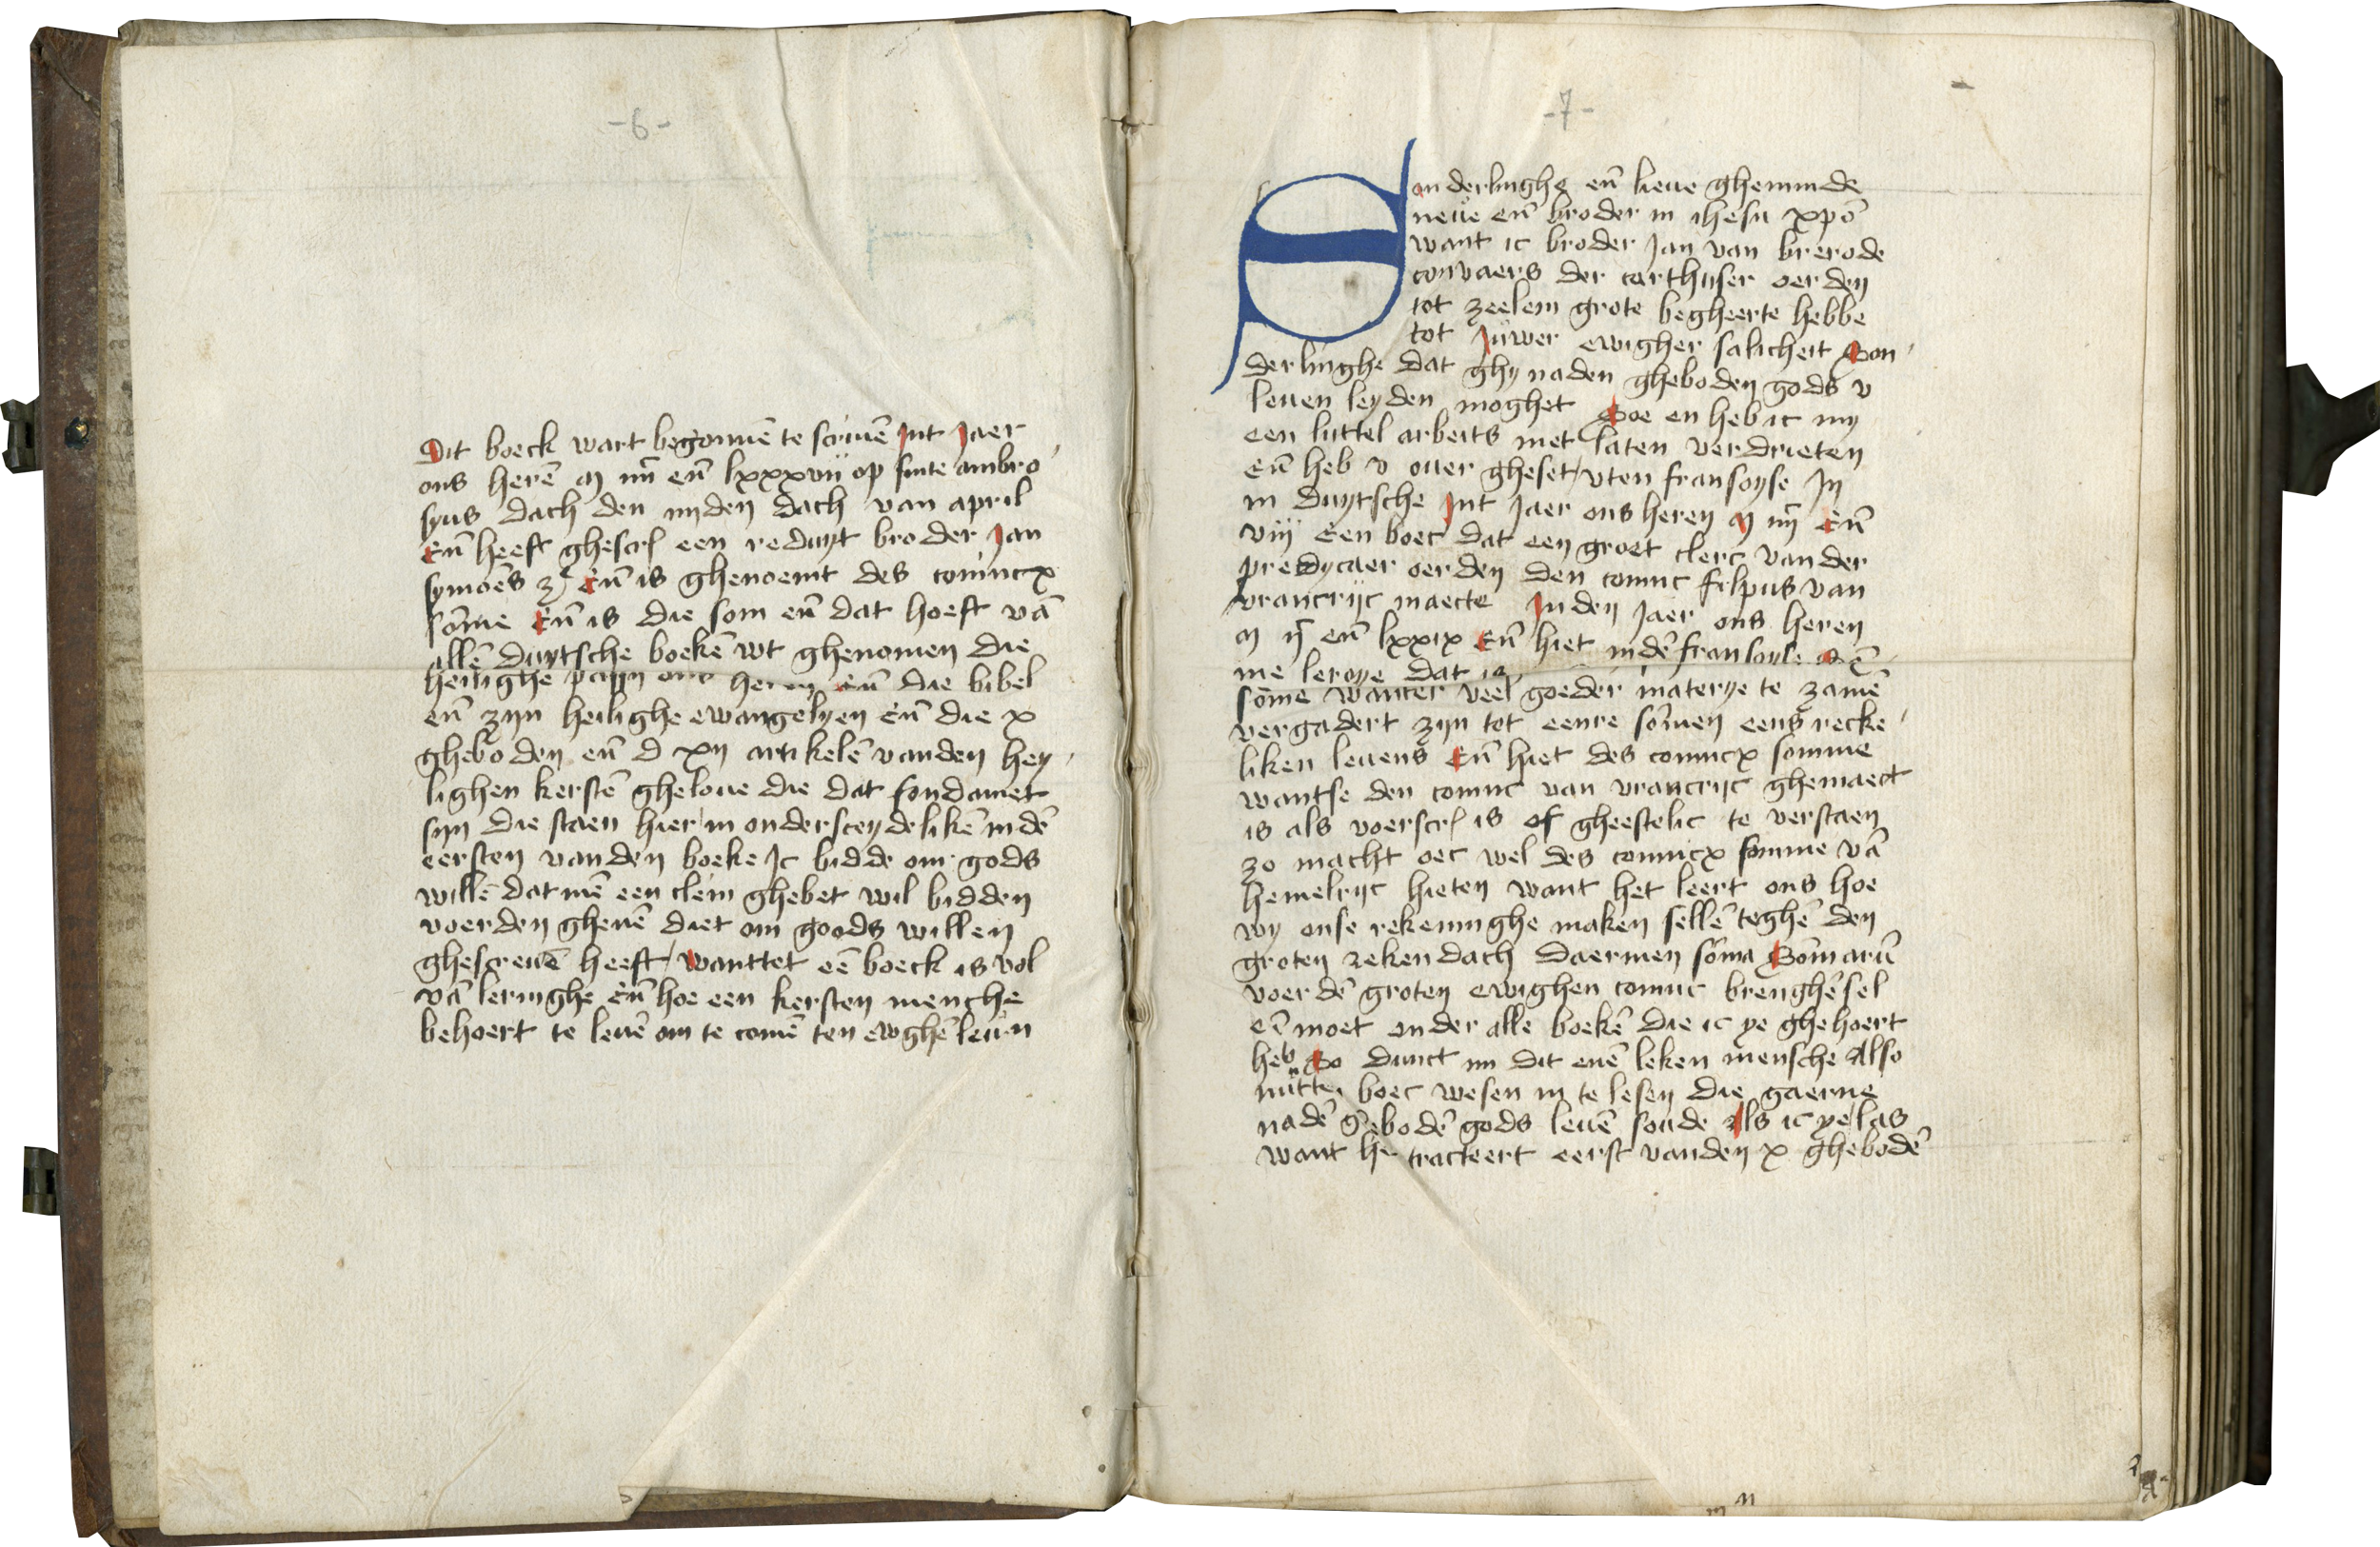 -6-
Dit boeck wart begonnē te scriuē Int Jaer
ons herē m iiijc eñ lxxxvij op sinte ambro
syus dach den iiijden dach van april
Eñ heeft ghescr een reduyt broder Jan
symoēs zͦ Eñ is ghenoemt des conincx
sōme Eñ is die som eñ dat hoeft vā
allē duytsche boekē wt ghenomen die
heilighe payn ons heren Eñ die bibel
eñ zyn heilighe ewangelyen Eñ die x
gheboden eñ d xij artikelē vanden hey
lighen kerstē gheloue die dat fondamet
syn die staen hier in ondersceydelikē indē
eersten vanden boeke Ic bidde om gods
willē dat mē een clein ghebet wil bidden
voerden ghenē diet om goods willen
ghescreuē heeft / wanttet eē boeck is vol
vā leringhe Eñ hoe een kersten mensche
behoert te leuē om te comē ten ewghē leuen
-7-
Sonderlinghe eñ lieue gheminde
neue eñ broder in ihesu xpō
want ic broder Jan van brerode
convaers der carthuser oerden
tot zeelem grote begheerte hebbe
tot Juwer ewigher salicheit Son
derlinghe dat ghy naden gheboden gods v
leuen leyden moghet Soe en heb ic my
een luttel arbeits niet laten verdrieten
eñ heb v ouer gheset / vten fransoyse In
in duytsche Int Jaer ons heren m iiijc Eñ
viij Een boec dat een groet clerc vander
predycaer oerden den coninc filpus van
vrancrijc maecte In den Jaer ons heren
m ijc eñ lxxix Eñ hiet indē fransoyse Sō
me leroye dat is
sōme wanter veel goeder materye te zamē
vergadert zyn tot eenre sōmen eens recke
liken leuens Eñ hiet des conincx somme
wantse den coninc van vrancrijc ghemaect
is als voerscr is of gheestelic te verstaen
zo macht oec wel des conincx somme vā
hemelrijc hieten want het leert ons hoe
wy onse rekeninghe maken sellē teghē den
groten rekendach daermen sōma Sōmarū
voer dē groten ewighen coninc brenghē sel
eñ moet onder alle boekē die ic ye ghehoert
heb So dunct mi dit enē leken mensche Also
nutten boec wesen in te lesen die gaerne
nadē ghebodē gods leuē soude Als ic ye las
want het tracteert eerst vanden x ghebodē